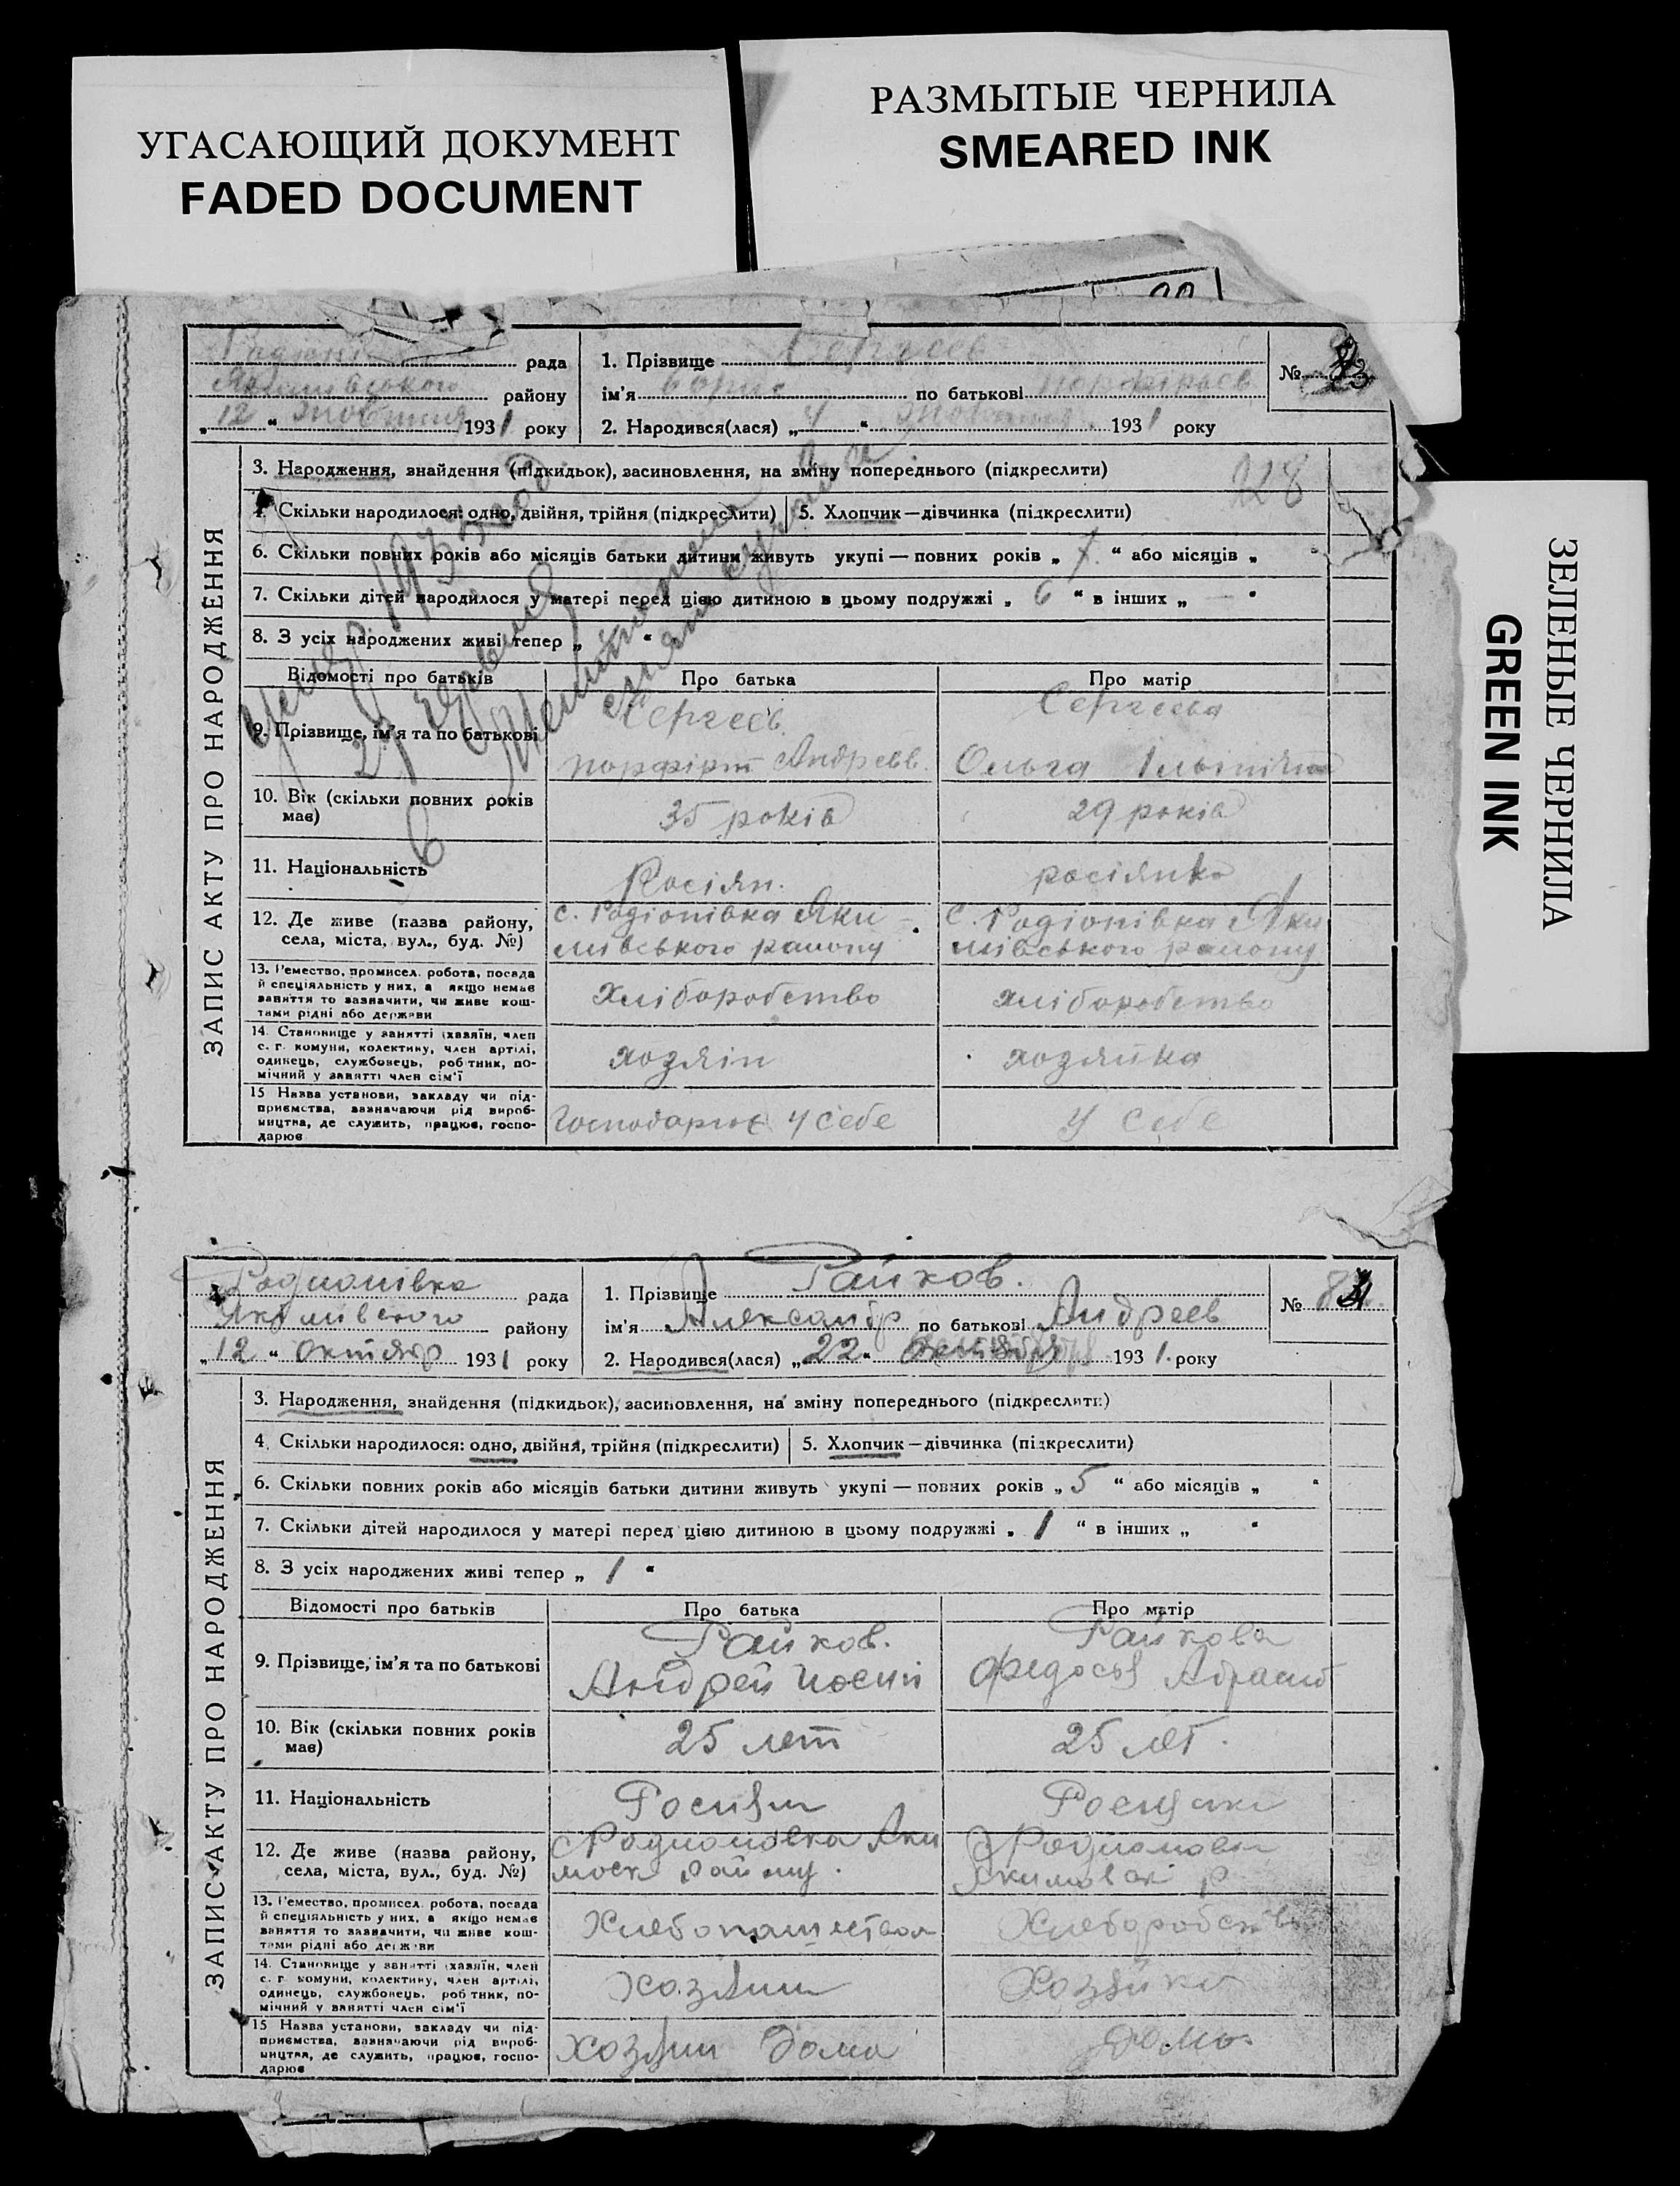 УГАСАЮЩИЙ ДОКУМЕНТ
FADED DOCUMENT
РАЗМЫТЫЕ ЧЕРНИЛА
SMEARED INK
ЗЕЛЕНЫЕ ЧЕРНИЛА
GREEN INK
рада
Якимівського району
„12“ жовтня 1931 року
1. Прізвище Сергєєв
ім'я Борис по батькові Порфірьєв
2. Народився(лася) „4“ жовтня 1931 року
№
ЗАПИС АКТУ ПРО НАРОДЖЕННЯ
3. Народження, знайдення (підкидьок), засиновлення, на зміну попереднього (підкреслити)
228
4. Скільки народилося: одно, двійня, трійня (підкреслити) 5. Хлопчик—дівчинка (підкреслити)
6. Скільки повних років або місяців батьки дитини живуть укупі — повних років „ “ або місяців „ “
7. Скільки дітей народилося у матері перед цією дитиною в цьому подружжі „6“ в інших „—“
8. З усіх народжених живі тепер „ “
Відомості про батьків Про батька Про матір
9. Прізвище, ім'я та по батькові
Сергєєв
Порфірій Андреєв.
Сергєєва
Ольга
10. Вік (скільки повних років має) 35 років 29 років
11. Національність Росіян. росіянка
12. Де живе (назва району, села, міста, вул., буд. №)
с. Родіонівка Яки-
мівського району
с. Родіонівка Яки
мівського району
13. Ремество, промисел, робота, посада
й спеціяльність у них, а якщо немає
заняття то зазначити, чи живе кош-
тами рідні або держави
хліборобство хліборобство
14. Становище у занятті (хазяїн, член
с. г. комуни, колективу, член артілі,
одинець, службовець, робітник, по-
мічний у занятті член сім'ї
хозяїн хозяйка
15 Назва установи, закладу чи під-
приємства, зазначаючи рід вироб-
ництва, де служить, працює, госпо-
дарює
Господарює у себе у себе
Родионівка рада
Якимівского району
„12“ октябр 1931 року
1. Прізвище Райков.
ім'я Александр по батькові Андреев
2. Народився(лася) „22“ 1931. року
№
ЗАПИС АКТУ ПРО НАРОДЖЕННЯ
3. Народження, знайдення (підкидьок), засиновлення, на зміну попереднього (підкреслити)
4. Скільки народилося: одно, двійня, трійня (підкреслити) 5. Хлопчик—дівчинка (підкреслити)
6. Скільки повних років або місяців батьки дитини живуть укупі — повних років „5“ або місяців „ “
7. Скільки дітей народилося у матері перед цією дитиною в цьому подружжі „1“ в інших „ “
8. З усіх народжених живі тепер „1“
Відомості про батьків Про батька Про матір
9. Прізвище, ім'я та по батькові
Райков.
Андрей
Райкова
Федосья
10. Вік (скільки повних років має) 25 лет 25 лет.
11. Національність Росиян
12. Де живе (назва району, села, міста, вул., буд. №)
Родионовка Яки
моск району.
13. Ремество, промисел, робота, посада
й спеціяльність у них, а якщо немає
заняття то зазначити, чи живе кош-
тами рідні або держави
Хлебопашество Хлеборобств
14. Становище у занятті (хазяїн, член
с. г. комуни, колективу, член артілі,
одинець, службовець, робітник, по-
мічний у занятті член сім'ї
хозяин Хозяйка
15 Назва установи, закладу чи під-
приємства, зазначаючи рід вироб-
ництва, де служить, працює, госпо-
дарює
хозяин дома дома